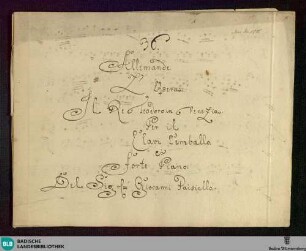 36.
Allemande
Il Re Teodoro in Venezia
Per il
Clavi Cembalo
e
Forte Piano
Del Sigre Giovanni Paisiello
BLB
BADISCHE
LANDESBIBLIOTHEK
Baden-Württemberg